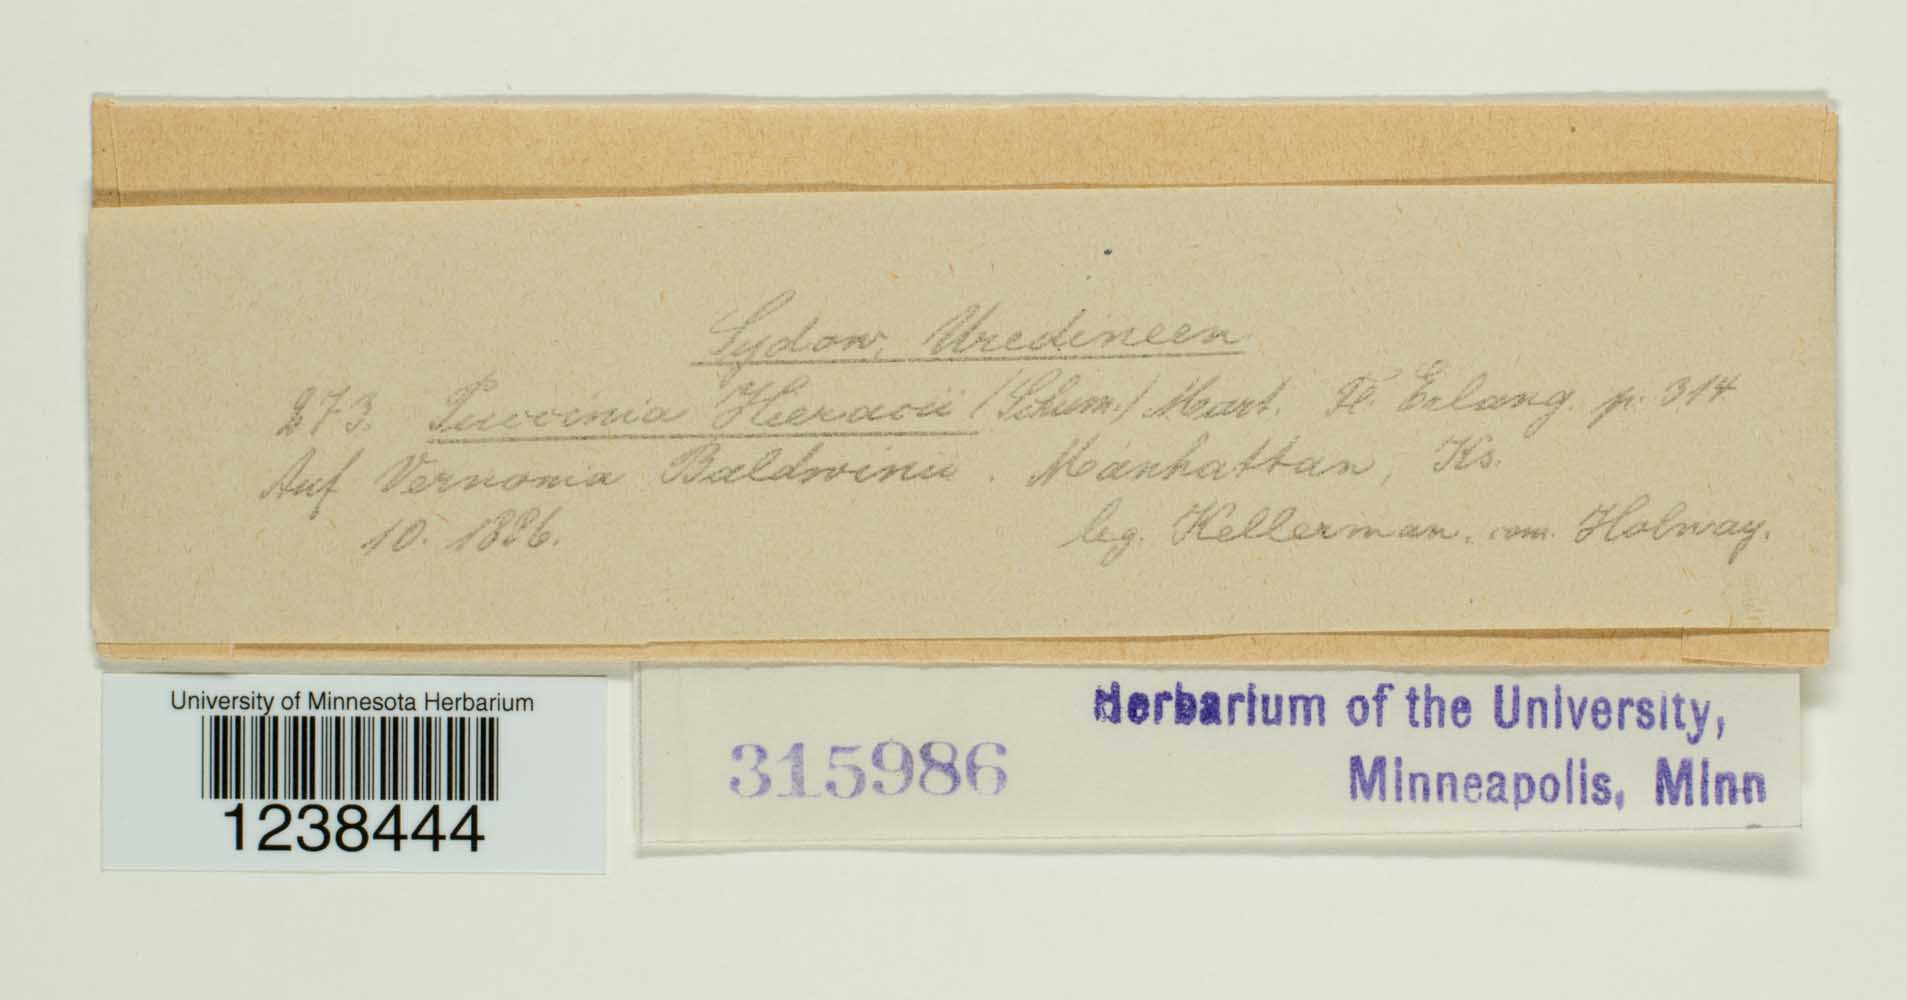 Sydow, Uredineen
273. Puccinia Hieracii (Schum.) Mart. Fl. Erlang. p. 314
Auf Vernonia Baldwinii. Manhattan, Ks.
10. 1886. leg. Kellerman, com. Holway.
University of Minnesota Herbarium
1238444
315986
Herbarium of the University,
Minneapolis, Minn